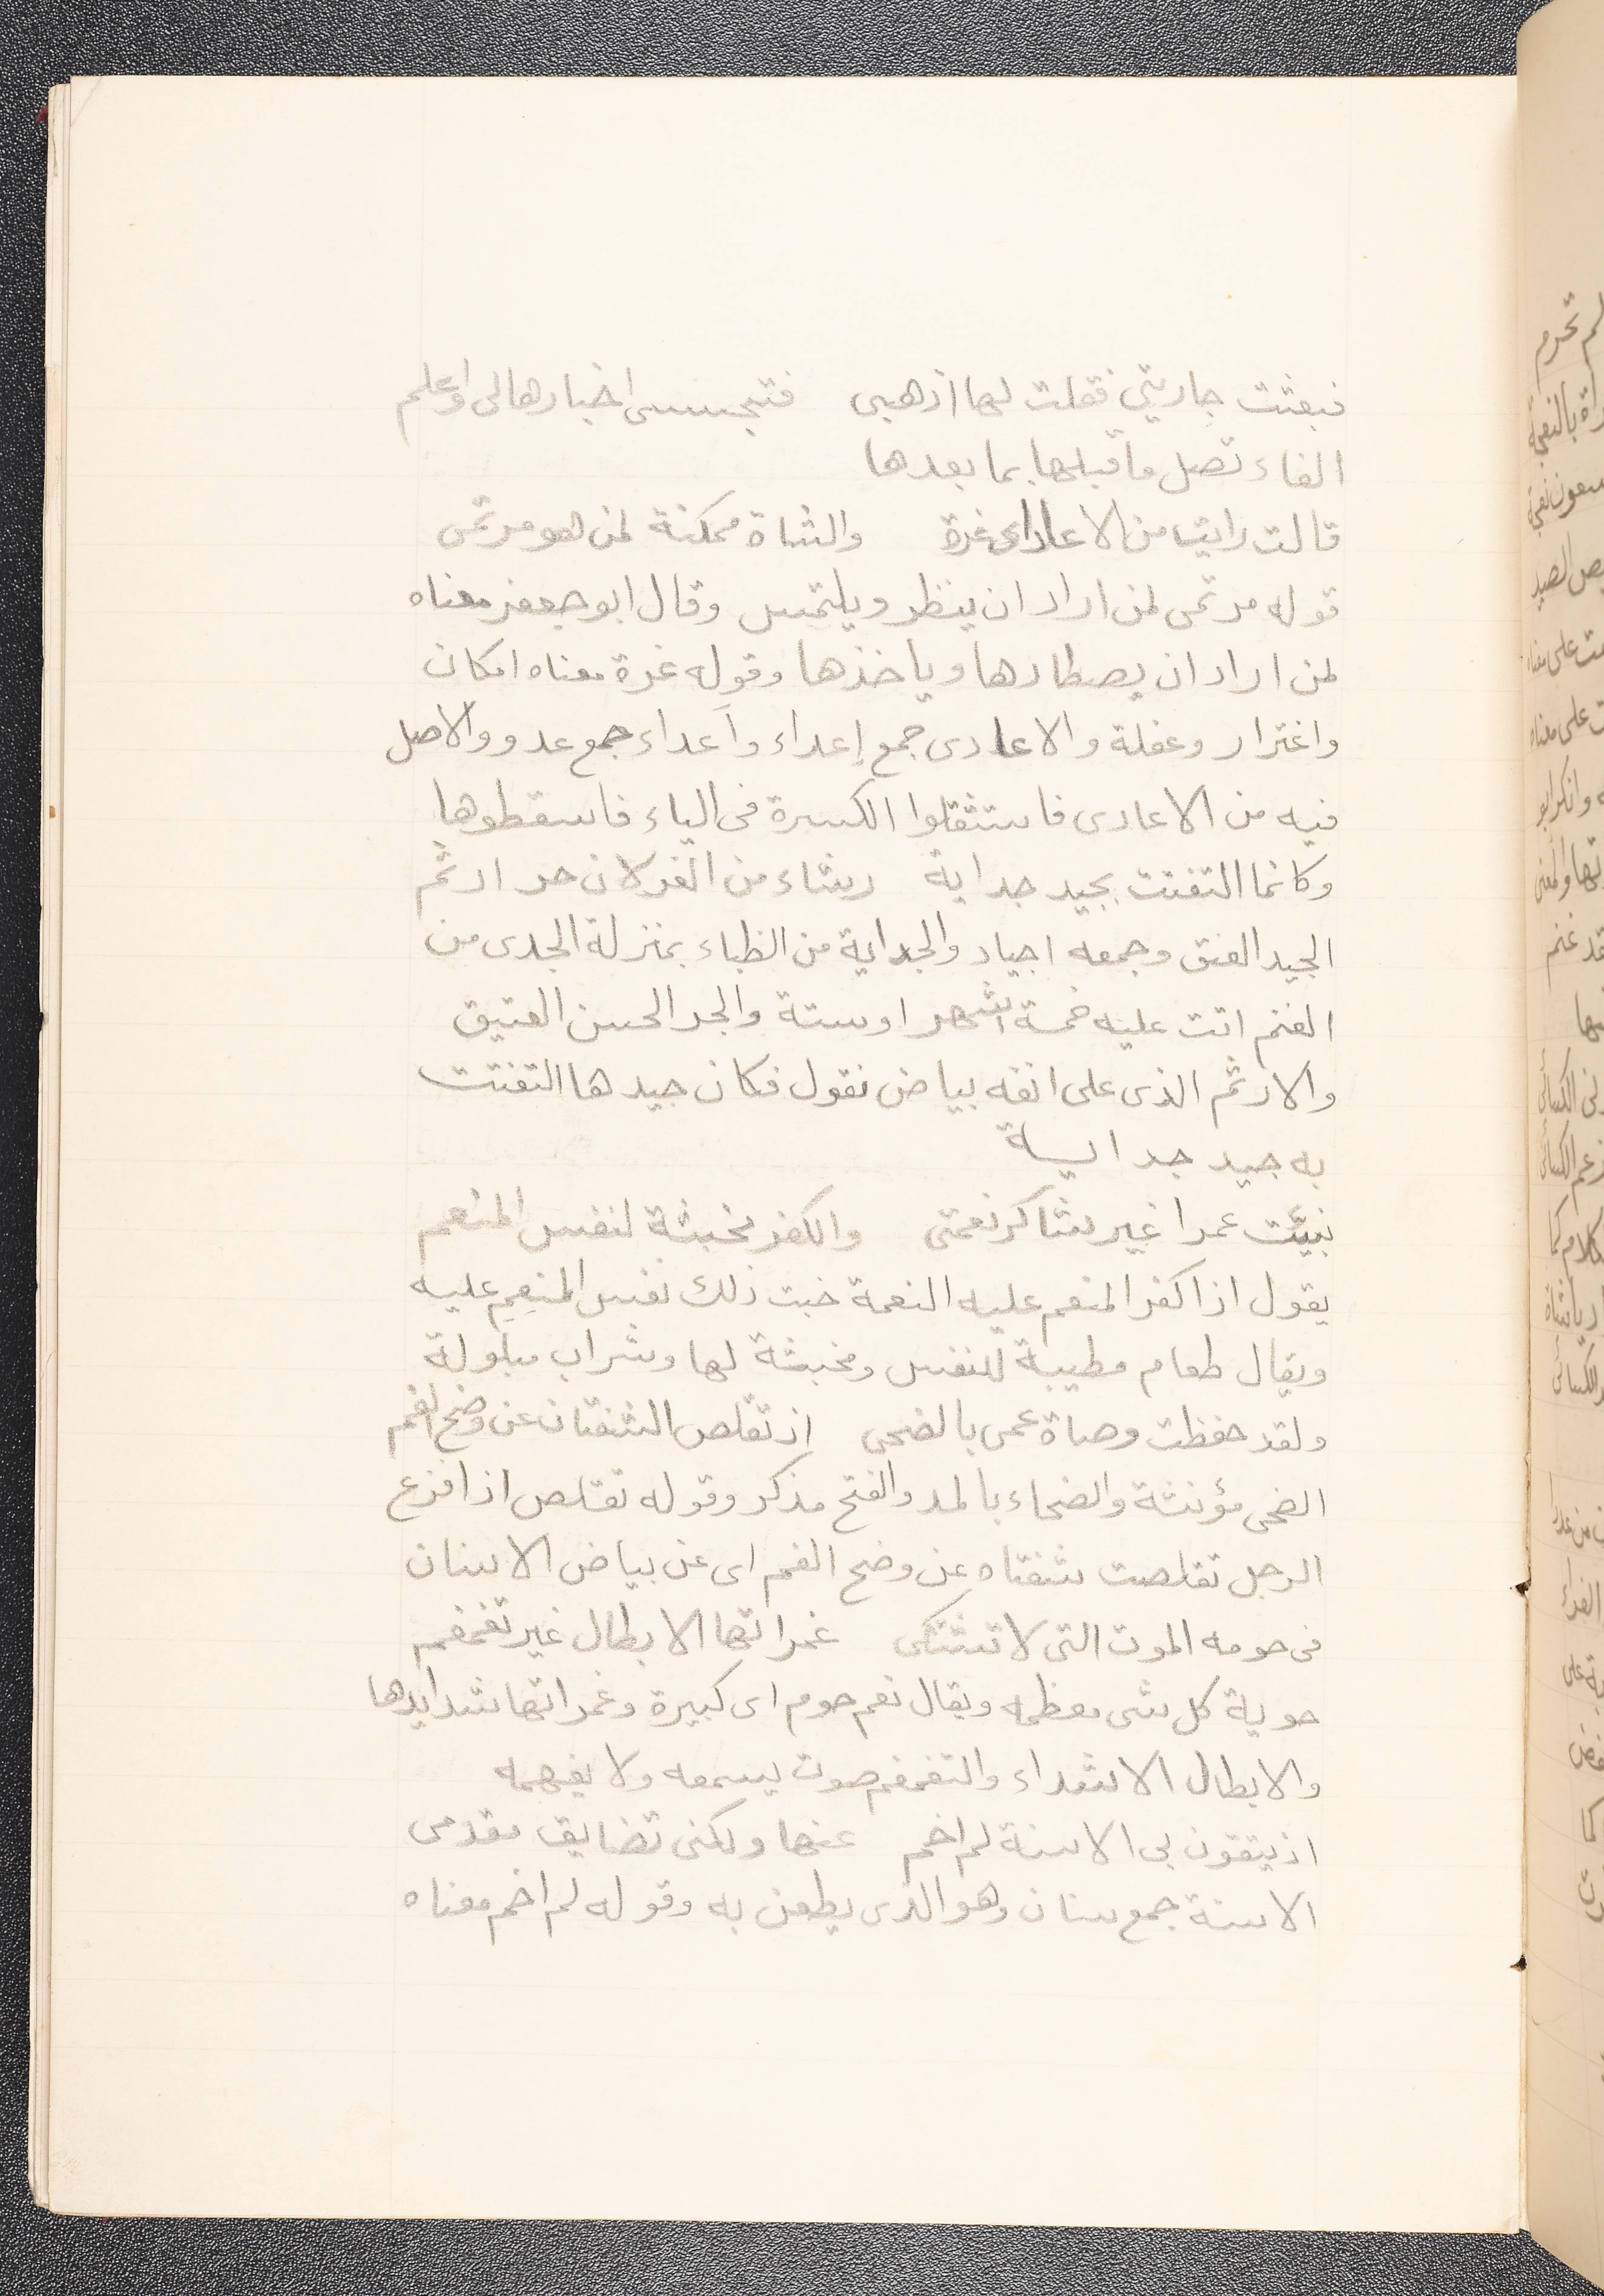 فبعثت جاريتي فقلت لها اذهبى فتجسسى اخبارها لى واعلم
الفاء تصل ما قبلها بما بعدها
قالت رايت من الاعادى غرة والشاة ممكنة لمن هو مرتمى
قوله مرتمى لمن اراد ان ينظر ويلتمس وقال ابو جعفر معناه
لمن اراد ان يصطادها وياخذها وقوله غرة معناه امكان
واغترار وغفلة والاعادى جمع إعداء وأعداء جمع عدو والاصل
فيه من الاعادى فاستثقلوا الكسرة فى الياء فاسقطوها
وكانما التفتت بجيد جداية رشاء من الغزلان حر ارثم
الجيد العنق وجمعه اجياد والجداية من الظباء بمنزلة الجدى من
الغنم اتت عليه خمسة اشهر اوستة والحر الحسن العتيق
والارثم الذى على انفه بياض نقول فكان جيدها التفتت
به جيد جداية
نبيئت عمرا غير شاكر نعمتى والكفر مخبثة لنفس المنعم
يقول اذا كفر المنعم عليه النعمة خبت ذلك نفس المنعِمِ عليه
ويقال طعام مطيبة للنفس ومخبثة لها وشراب مبلولة
ولقد حفظت وصاة عمى بالضحى اذ تقلص الشفتان عن وضح الفم
الضحى مؤنثة والضحاء بالمد والفتح مذكر وقوله تقلص اذا فزع
الرجل تقلصت شفتاه عن وضح الفم اى عن بياض الاسنان
فى حومه الموت التى لا تشتكى غمراتها الابطال غير تغمغم
حوية كل شى معظمه ويقال نعم حوم اى كبيرة وغمراتها شدايدها
والابطال الاشداء والتغمغم صوت يسمعه ولا يفهمه
اذ يتقون بى الاسنة لم اخم عنها ولكنى تضايق مقدمى
الاسنة جمع سنان وهو الذى يطعن به وقوله لم اخم معناه